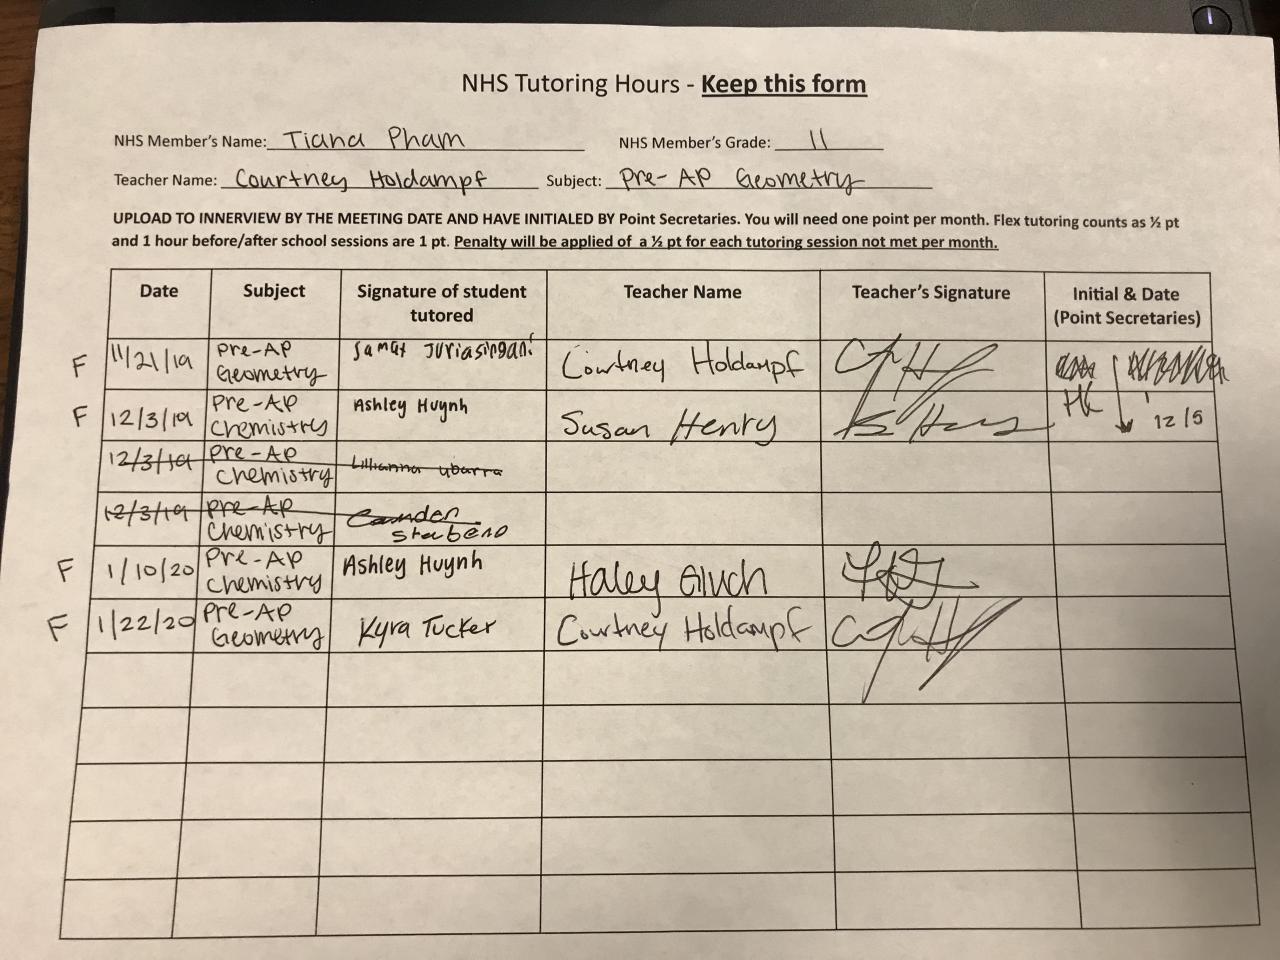 NHS Tutoring Hours - Keep this form
NHS Member's Name: Tiana Pham NHS Member's Grade: 11
Teacher Name: Courtney Holdampf Subject: Pre-AP Geometry
UPLOAD TO INNERVIEW BY THE MEETING DATE AND HAVE INITIALED BY Point Secretaries. You will need one point per month. Flex tutoring counts as ½ pt
and 1 hour before/after school sessions are 1 pt. Penalty will be applied of a ½ pt for each tutoring session not met per month.
Date Subject Signature of student Teacher Name Teacher's Signature Initial & Date
tutored (Point Secretaries)
F 11/21/19 Pre-AP Courtney Holdampf
Geometry
F 12/3/19 Pre-AP Ashley Huynh Susan Henry HK 12/5
Chemistry
12/3/19 Pre-AP Lillianna Ybarra
Chemistry
12/3/19 Pre-AP Camden
Chemistry Stabeno
F 1/10/20 Pre-AP Ashley Huynh Haley Gluch
Chemistry
F 1/22/20 Pre-AP Kyra Tucker Courtney Holdampf
Geometry